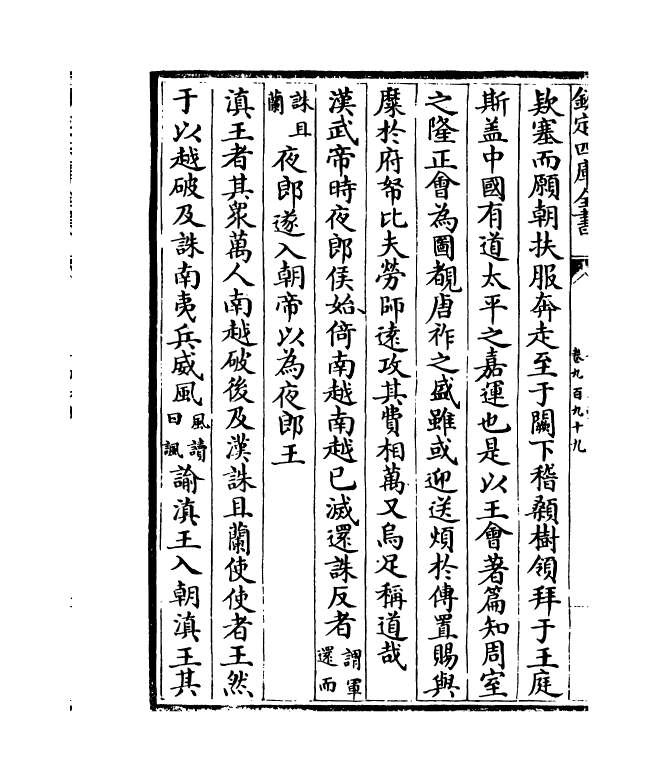 欽定四庫全書
卷九百九十九
欵塞而願朝扶服奔走至于闕下稽顙樹領拜于王庭
斯盖中國有道太平之嘉運也是以王會著篇知周室
之隆正會為圖覩唐祚之盛雖或迎送煩於傳置賜與
糜於府帑比夫勞師遠攻其費相萬又烏足稱道哉
漢武帝時夜郎侯始倚南越南越已滅還誅反者謂軍還而
誅且蘭夜郎遂入朝帝以為夜郎王
滇王者其衆萬人南越破後及漢誅且蘭使使者王然
于以越破及誅南夷兵威風風讀曰諷諭滇王入朝滇王其